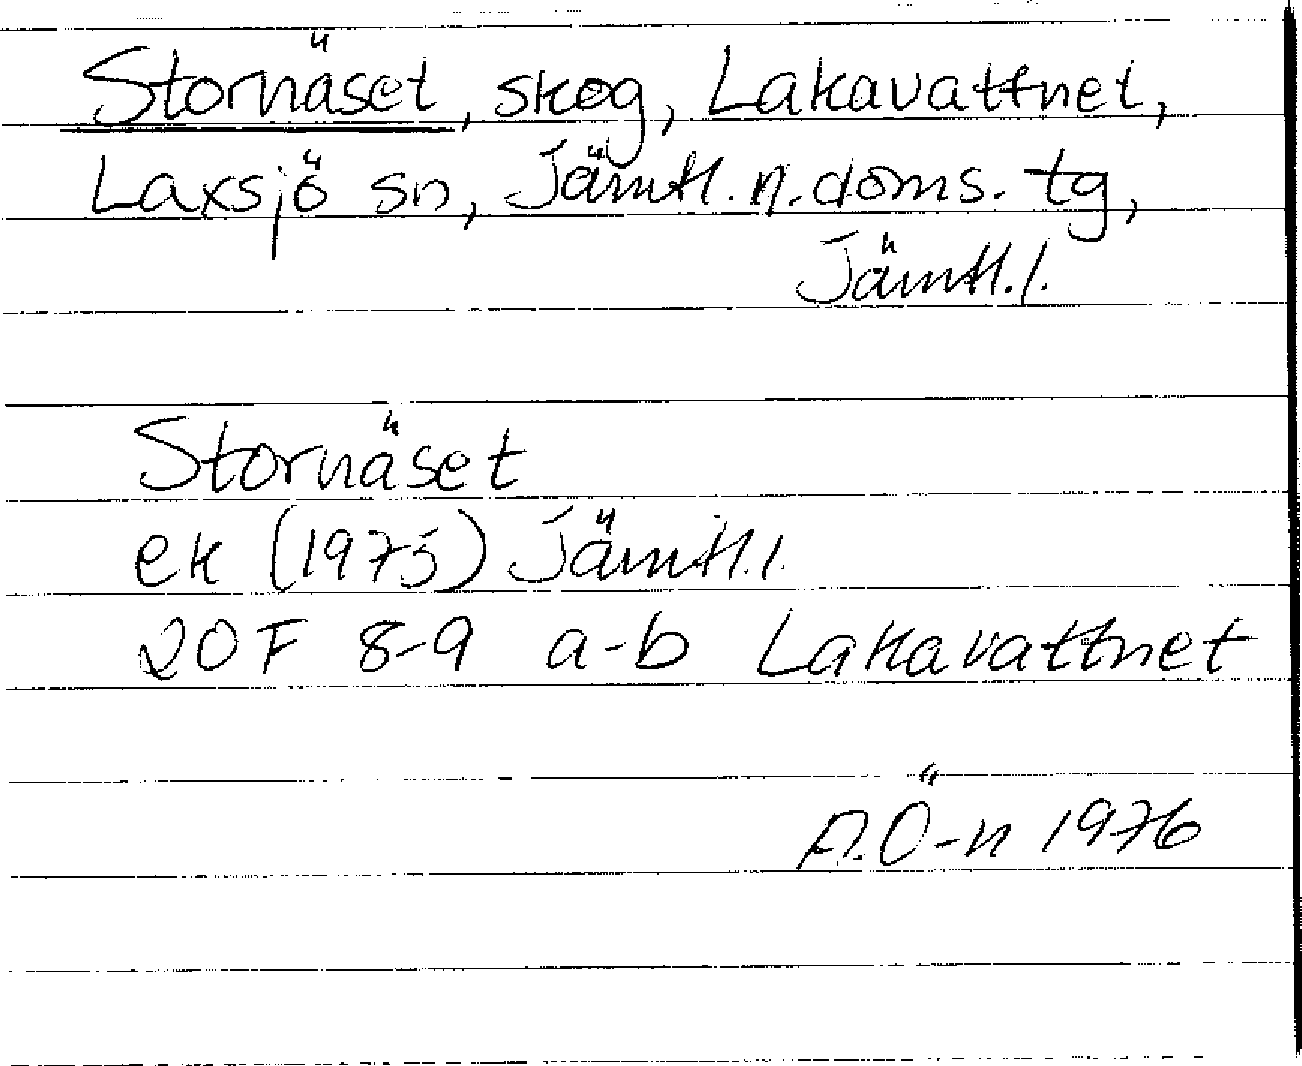 Stornäset, skog, Lakavattnet,
Laxsjö sn, Jämtl. n. doms. tg,
Jämtl. l.
Stornäset
ek (1975) Jämtl. l.
20F 8-9 a-b Lakavattnet
A. Ö-n 1976